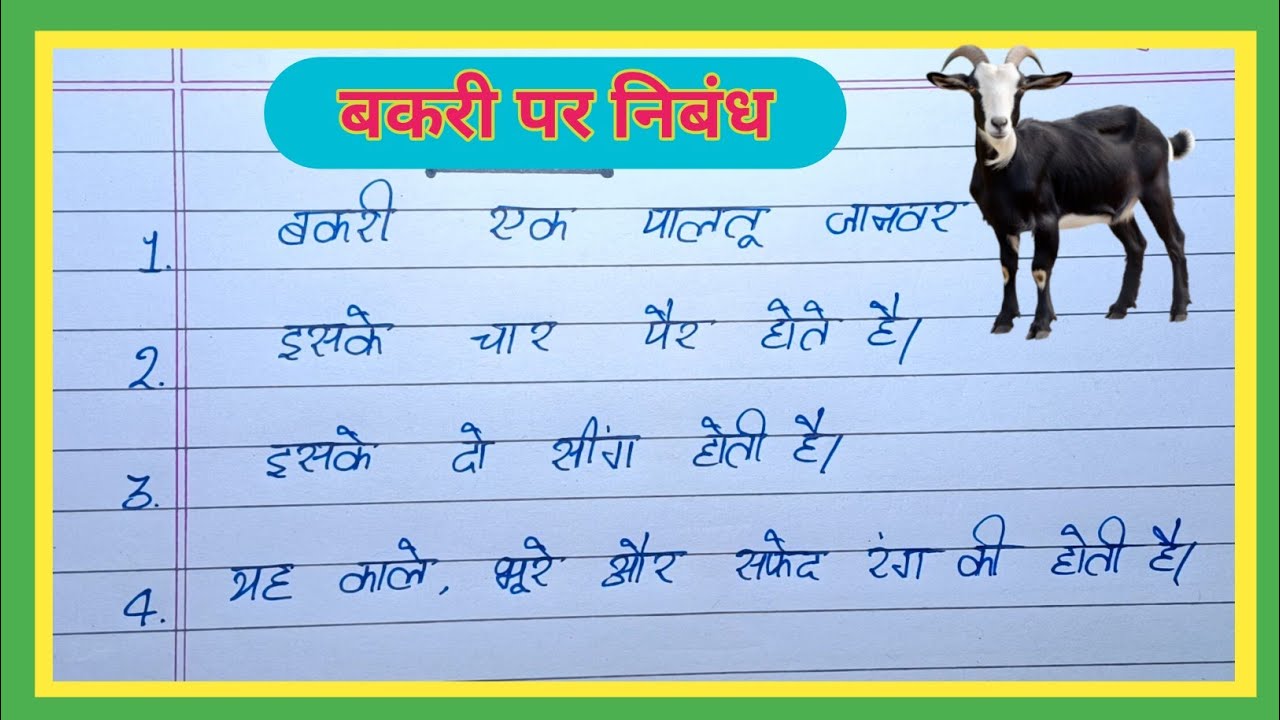 बकरी पर निबंध
1. बकरी एक पालतू जानवर
2. इसके चार पैर होते है।
3. इसके दो सींग होती है।
4. यह काले, भूरे और सफेद रंग की होती है।